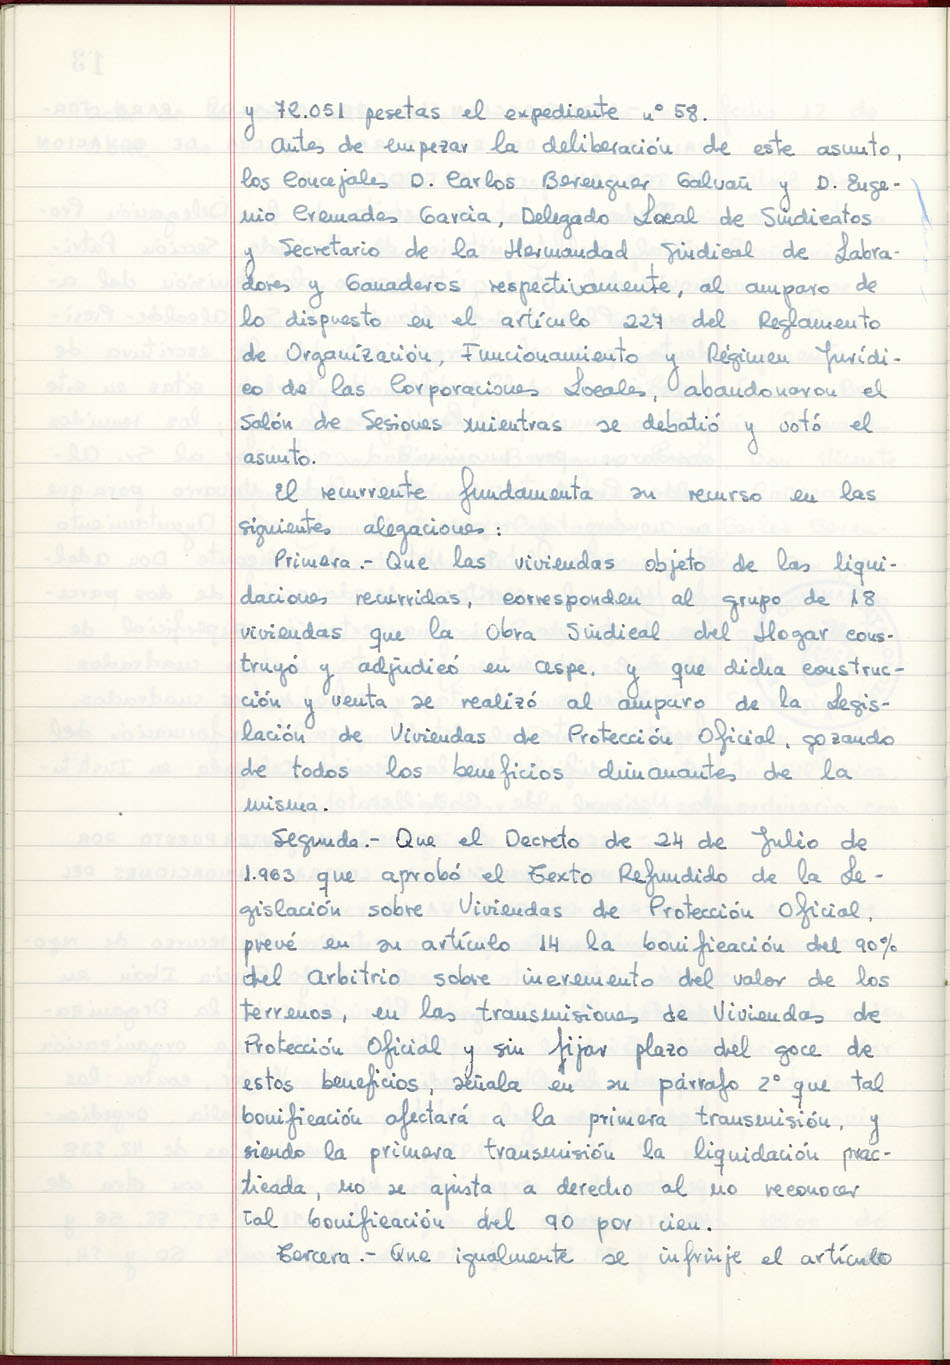 y 72.051 pesetas el expediente nº 58.
Antes de empezar la deliberación de este asunto,
los Concejales D. Carlos Berenguer Galvañ y D. Euge-
nio Cremades Garcia, Delegado Local de Sindicatos
y Secretario de la Hermandad Sindical de Labra-
dores y Ganaderos respectivamente, al amparo de
lo dispuesto en el artículo 227 del Reglamento
de Organización, Funcionamiento y Régimen Jurídi-
co de las Corporaciones Locales, abandonaron el
Salón de Sesiones mientras se debatió y votó el
asunto.
El recurrente fundamenta su recurso en las
siguientes alegaciones:
Primera.- Que las viviendas objeto de las liqui-
daciones recurridas, corresponden al grupo de 18
viviendas que la Obra Sindical del Hogar cons-
truyó y adjudicó en Aspe, y que dicha construc-
ción y venta se realizó al amparo de la Legis-
lación de Viviendas de Protección Oficial, gozando
de todos los beneficios dimanantes de la
misma.
Segunda.- Que el Decreto de 24 de Julio de
1.963 que aprobó el Texto Refundido de la Le-
gislación sobre Viviendas de Protección Oficial,
prevé en su artículo 14 la bonificación del 90%
del Arbitrio sobre incremento del valor de los
terrenos, en las transmisiones de Viviendas de
Protección Oficial y sin fijar plazo del goce de
estos beneficios, señala en su párrafo 2º que tal
bonificación afectará a la primera transmisión, y
siendo la primera transmisión la liquidación prac-
ticada, no se ajusta a derecho al no reconocer
tal bonificación del 90 por cien.
Tercera.- Que igualmente se infrinje el artículo